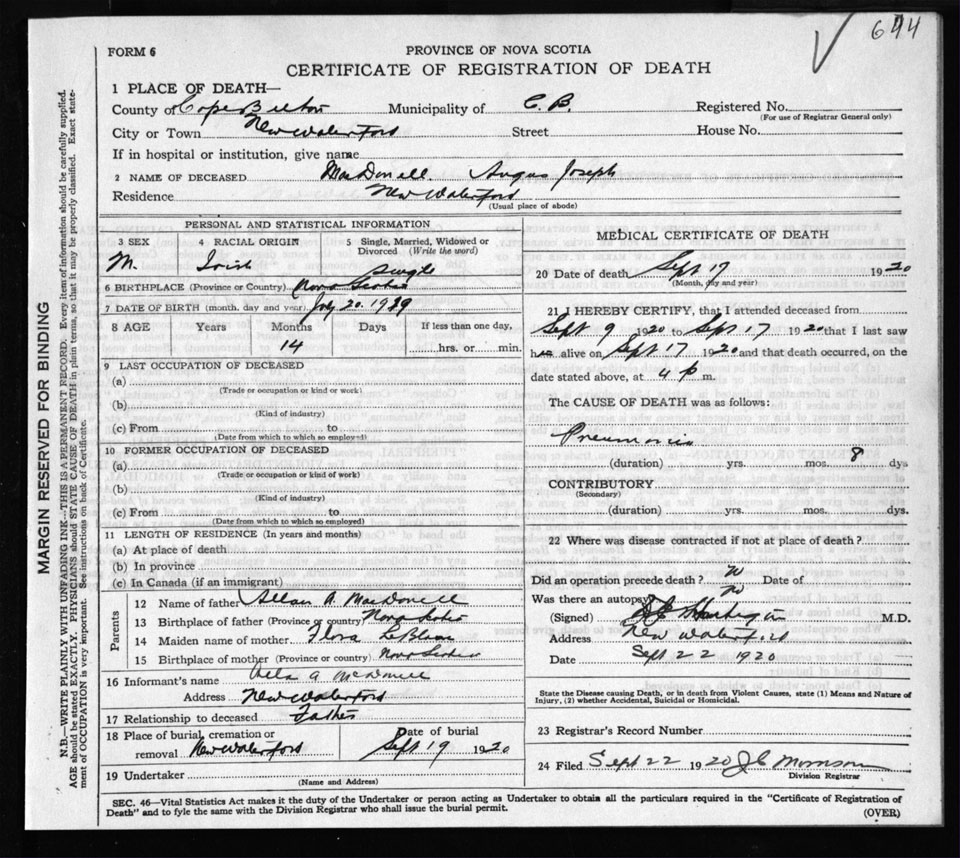 644
FORM 6
PROVINCE OF NOVA SCOTIA
CERTIFICATE OF REGISTRATION OF DEATH
1 PLACE OF DEATH—
County of Cape Breton Municipality of C. B. Registered No.
(For use of Registrar General only)
City or Town New Waterford Street House No.
If in hospital or institution, give name
2 NAME OF DECEASED MacDonell Angus Joseph
Residence New Waterford
(Usual place of abode)
PERSONAL AND STATISTICAL INFORMATION
3 SEX 4 RACIAL ORIGIN 5 Single, Married, Widowed or
Divorced (Write the word)
M. Irish Single
6 BIRTHPLACE (Province or Country) Nova Scotia
7 DATE OF BIRTH (month, day and year) July 20. 19
8 AGE Years Months Days If less than one day,
14 hrs. or min.
9 LAST OCCUPATION OF DECEASED
(a)
(Trade or occupation or kind or work)
(b)
(Kind of industry)
(c) From to
(Date from which to which so employed)
10 FORMER OCCUPATION OF DECEASED
(a)
(Trade or occupation or kind of work)
(b)
(Kind of industry)
(c) From to
(Date from which to which so employed)
11 LENGTH OF RESIDENCE (In years and months)
(a) At place of death
(b) In province
(c) In Canada (if an immigrant)
Parents
12 Name of father Allan A. MacDonell
13 Birthplace of father (Province or country) Nova Scotia
14 Maiden name of mother Flora LeBlanc
15 Birthplace of mother (Province or country) Nova Scotia
16 Informant's name A McDonell
Address New Waterford
17 Relationship to deceased Father
18 Place of burial, cremation or Date of burial
removal New Waterford Sept 19 1920
19 Undertaker
(Name and Address)
MEDICAL CERTIFICATE OF DEATH
20 Date of death Sept 17 1920
(Month, day and year)
21 I HEREBY CERTIFY, that I attended deceased from
Sept 9 1920 to Sept 17 1920 that I last saw
h alive on Sept 17 1920 and that death occurred, on the
date stated above, at 4 p m.
The CAUSE OF DEATH was as follows:
Pneumonia
(duration) yrs. mos. 8 dys
CONTRIBUTORY
(Secondary)
(duration) yrs. mos. dys.
22 Where was disease contracted if not at place of death?
Did an operation precede death? Date of
Was there an autopsy No
(Signed) M.D.
Address New Waterford
Date Sept 22 1920
State the Disease causing Death, or in death from Violent Causes, state (1) Means and Nature of
Injury, (2) whether Accidental, Suicidal or Homicidal.
23 Registrar's Record Number
24 Filed Sept 22 1920 J C Morrison
Division Registrar
SEC. 46—Vital Statistics Act makes it the duty of the Undertaker or person acting as Undertaker to obtain all the particulars required in the "Certificate of Registration of
Death" and to fyle the same with the Division Registrar who shall issue the burial permit.
(OVER)
MARGIN RESERVED FOR BINDING
N.B.—WRITE PLAINLY WITH UNFADING INK—THIS IS A PERMANENT RECORD. Every item of information should be carefully supplied.
AGE should be stated EXACTLY. PHYSICIANS should STATE CAUSE OF DEATH in plain terms, so that it may be properly classified. Exact state-
ment of OCCUPATION is very important. See instructions on back of Certificate.